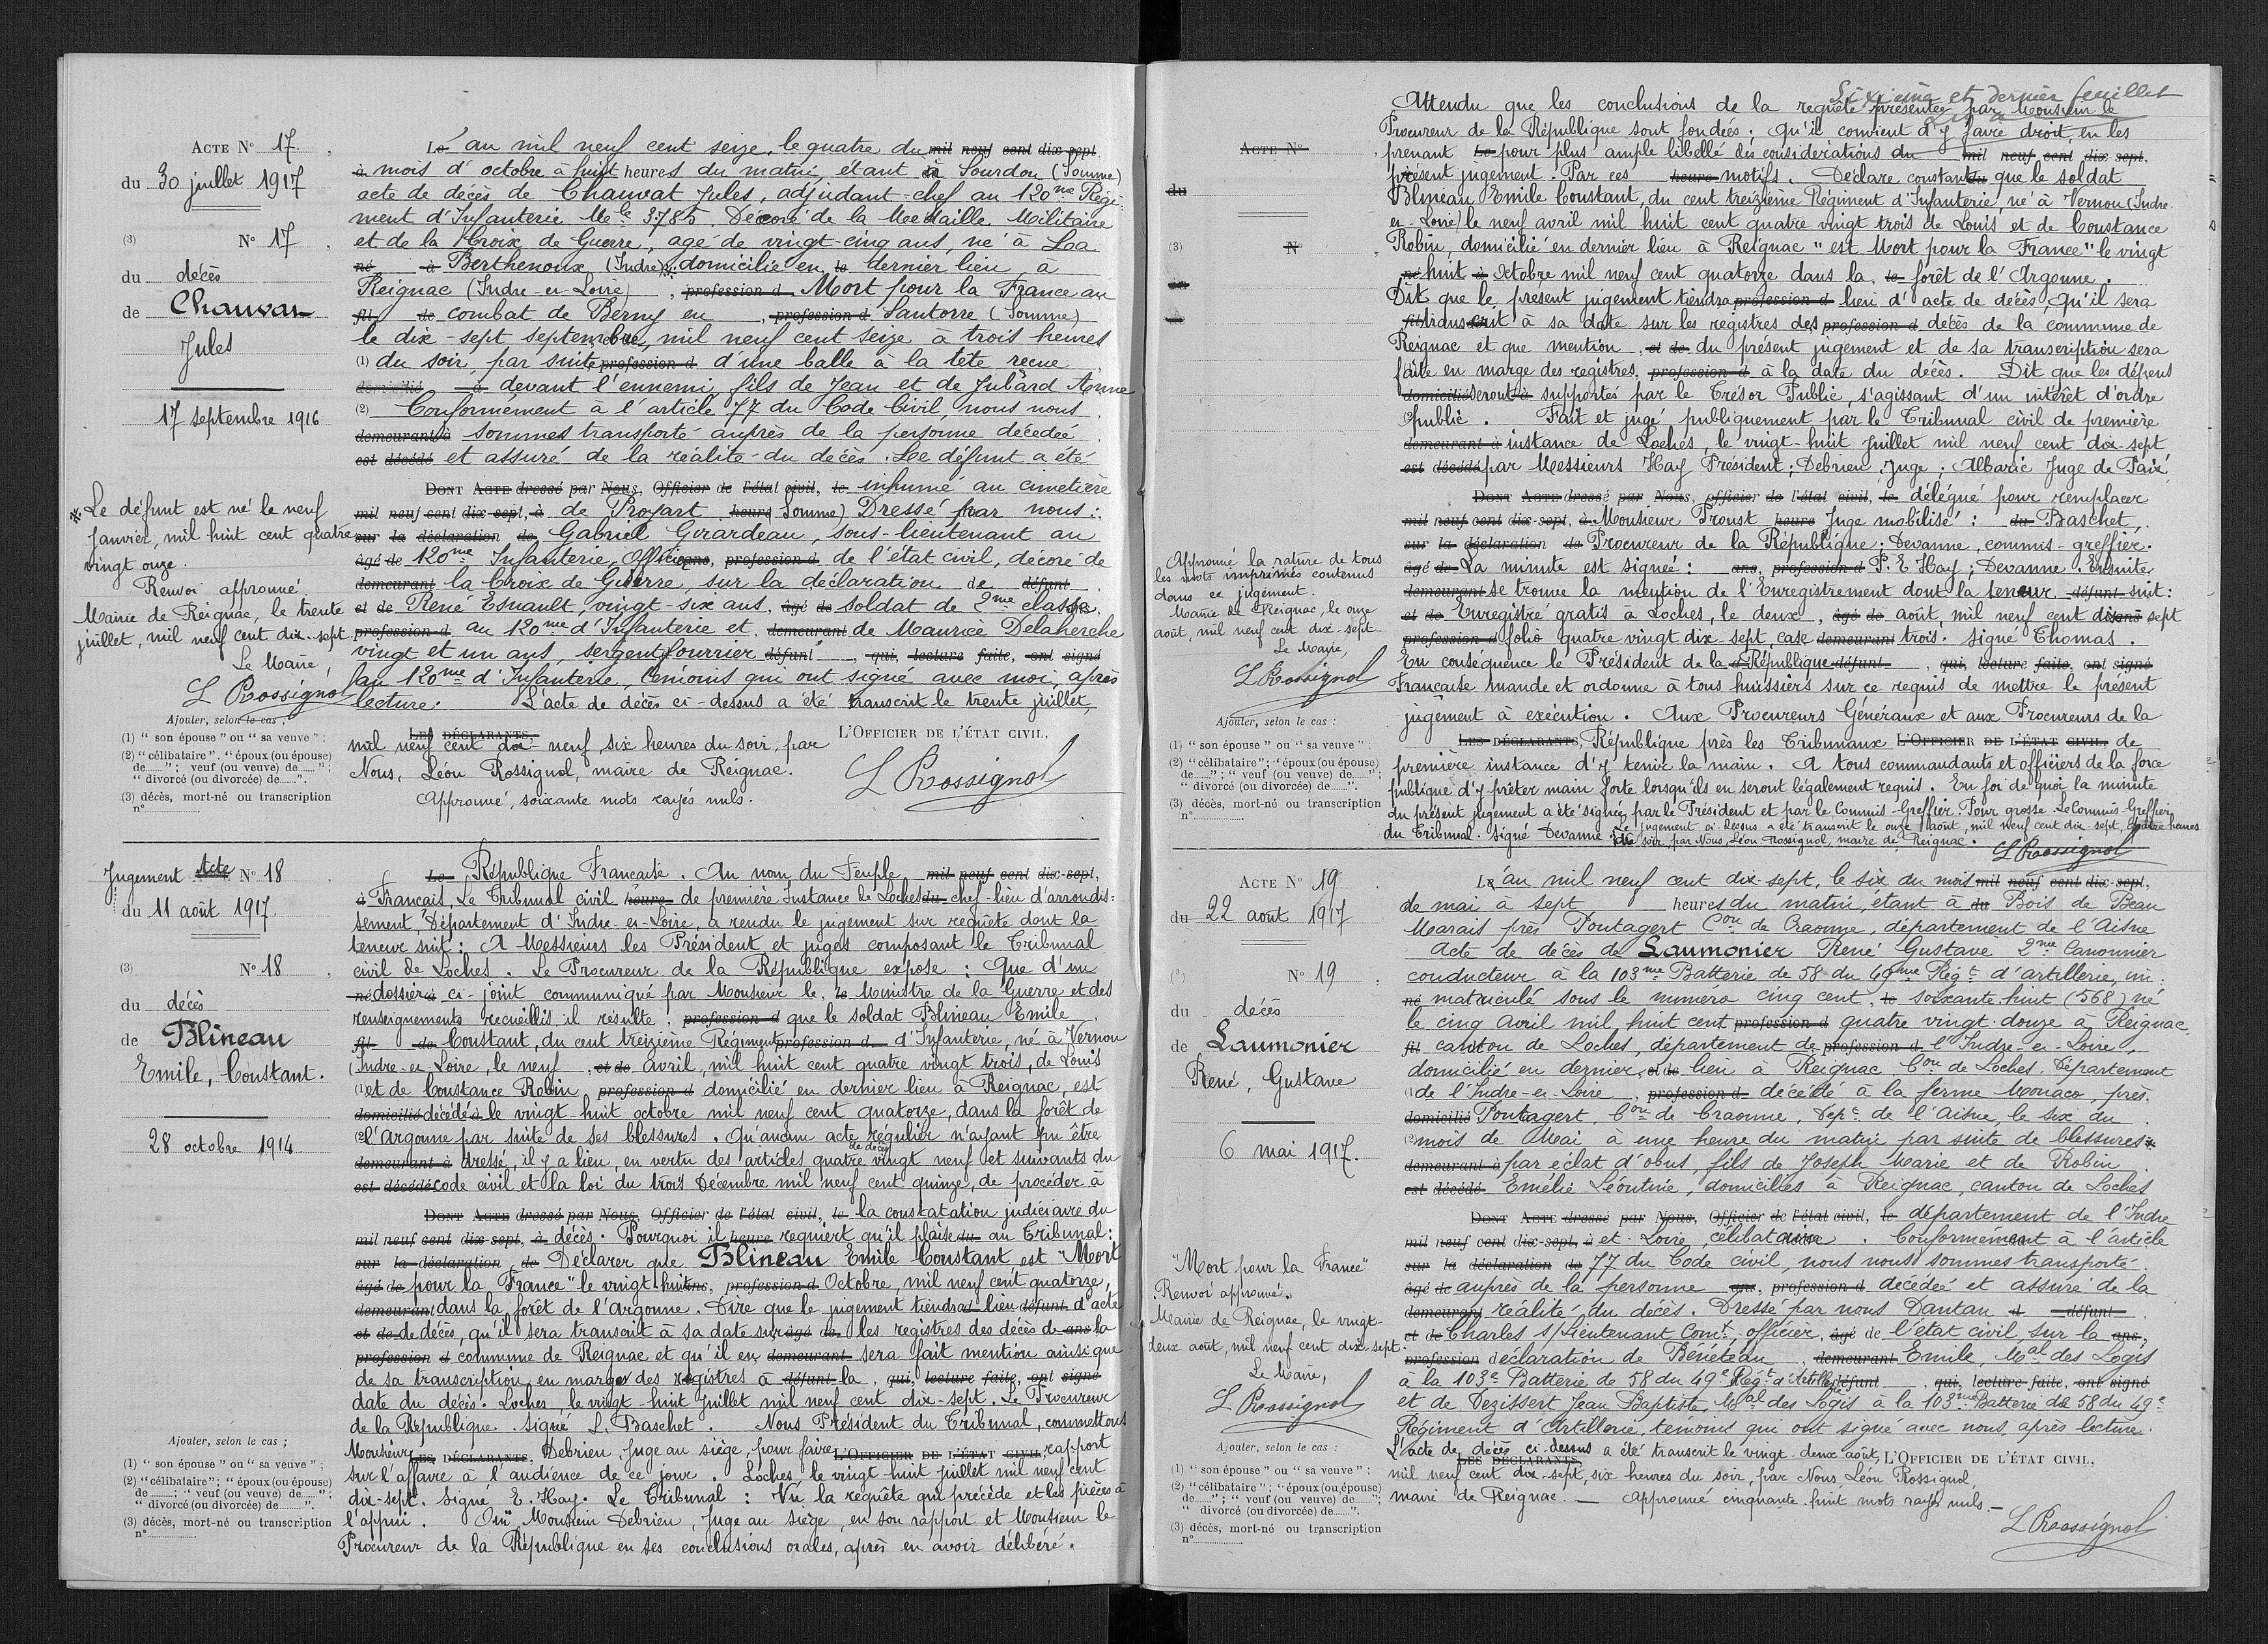 ACTE N° 17.
du 30 juillet 1917
(3) N° 17
du décès
de Chauvat
Jules
17 septembre 1916
* Le défunt est né le neuf
janvier, mil huit cent quatre
vingt onze.
Renvoi approuvé.
Mairie de Reignac, le trente
juillet, mil neuf cent dix-sept.
Le Maire,
L Rossignol
Ajouter, selon le cas :
(1) “ son épouse ” ou “ sa veuve ” ;
(2) “ célibataire ” ; “ époux (ou épouse)
de......” ; “ veuf (ou veuve) de......” ;
“ divorcé (ou divorcée) de......”.
(3) décès, mort-né ou transcription
n°
L'an mil neuf cent seize, le quatre du mil neuf cent dix-sept,
à mois d'octobre à huit heures du matin, étant à Sourdon (Somme)
acte de décès de Chauvat Jules, adjudant-chef au 120me Régi-
ment d'Infanterie Mle 3785. Décoré de la Médaille Militaire
et de la Croix de Guerre, agé de vingt-cinq ans, né à La
né à Berthenoux (Indre) * domicilié en le dernier lieu à
Reignac (Indre-et-Loire), profession d Mort pour la France au
fil de combat de Berny en, profession d Santerre (Somme)
le dix-sept septembre, mil neuf cent seize à trois heures
(1) du soir, par suite profession d d'une balle à la tête reçue
domicilié à devant l'ennemi, fils de Jean et de Jubard Anne
(2) Conformément à l'article 77 du Code Civil, nous nous
demeurant à sommes transporté auprès de la personne décédée
est décédé et assuré de la réalité du décès. Le défunt a été
DONT ACTE dressé par Nous, Officier de l'état civil, le inhumé au cimetière
mil neuf cent dix-sept, à de Proyart heure (Somme) Dressé par nous :
sur la déclaration de Gabriel Girardeau, sous-lieutenant au
âgé de 120me Infanterie, Officier ans, profession d de l'état civil, décoré de
demeurant la Croix de Guerre, sur la déclaration de défunt
et de René Esnault, vingt-six ans, âgé de soldat de 2me classe
profession d au 120me d'Infanterie et, demeurant de Maurice Delaherche
vingt et un ans, sergent fourrier défunt, qui, lecture faite, ont signé
au 120me d'Infanterie, témoins qui ont signé avec moi, après
lecture. L'acte de décès ci-dessus a été transcrit le trente juillet,
LES DÉCLARANTS, L'OFFICIER DE L'ÉTAT CIVIL,
mil neuf cent dix-neuf, six heures du soir, par
Nous, Léon Rossignol, maire de Reignac.
Approuvé, soixante mots rayés nuls.
L Rossignol
Jugement Acte N° 18
du 11 août 1917.
(3) N° 18
du décès
de Blineau
Emile, Constant.
28 octobre 1914
Ajouter, selon le cas ;
(1) “ son épouse ” ou “ sa veuve ” ;
(2) “ célibataire ” ; “ époux (ou épouse)
de ......; “ veuf (ou veuve) de......” ;
“ divorcé (ou divorcée) de......”.
(3) décès, mort-né ou transcription
n°
Le République Française. Au nom du Peuple mil neuf cent dix-sept,
à Français, Le Tribunal civil heure de première Instance de Loches du chef-lieu d'arrondis-
sement, Département d'Indre-et-Loire, a rendu le jugement sur requête dont la
teneur suit : A Messieurs les Président et juges composant le Tribunal
civil de Loches. Le Procureur de la République expose : Que d'un
né dossier à ci-joint communiqué par Monsieur le, le Ministre de la Guerre et des
renseignements recueillis il résulte, profession d que le soldat Blineau Emile
fil de Constant, du cent treizième Régiment profession d d'Infanterie, né à Vernou
(Indre-et-Loire, le neuf, et de avril, mil huit cent quatre vingt trois, de Louis
(1) et de Constance Robin profession d domicilié en dernier lieu à Reignac, est
domicilié décédé à le vingt huit octobre mil neuf cent quatorze, dans la forêt de
(2) l'Argonne par suite de ses blessures. Qu'aucun acte régulier de décès n'ayant pu être
demeurant à dressé, il y a lieu, en vertu des articles quatre vingt neuf et suivants du
est décédé code civil et la loi du trois Décembre mil neuf cent quinze, de procéder à
DONT ACTE dressé par Nous, Officier de l'état civil, le la constatation judiciaire du
mil neuf cent dix sept, à décès. Pourquoi il heure requiert qu'il plaise du au Tribunal :
sur la déclaration de Déclarer que Blineau Emile Constant est "Mort
âgé de pour la France" le vingt huit ans, profession d Octobre, mil neuf cent quatorze,
demeurant dans la forêt de l'Argonne. Dire que le jugement tiendra d lieu défunt d'acte
et de de décès, qu'il sera transcrit à sa date sur âgé de les registres des décès de ans la
profession d commune de Reignac et qu'il en demeurant sera fait mention ainsi que
de sa transcription en marge des registres à défunt la, qui, lecture faite, ont signé
date du décès. Loches, le vingt-huit Juillet mil neuf cent dix-sept. Le Procureur
de la République. Signé L. Baschet. Nous Président du Tribunal, commettons
Monsieur LES DÉCLARANTS, Debrieu, Juge au siège, pour faire L'OFFICIER DE L'ÉTAT CIVIL, rapport
sur l'affaire à l'audience de ce jour. Loches, le vingt-huit juillet mil neuf cent
dix-sept. Signé E. Hay. Le Tribunal : Vu la requête qui précède et les pièces à
l'appui. Ouï Monsieur Debrieu, Juge au siège, en son rapport et Monsieur le
Procureur de la République en ses conclusions orales, après en avoir délibéré.
Sixième et dernier feuillet
ACTE N°
du
(3) N°
Approuvé la rature de tous
les mots imprimés contenus
dans ce jugement.
Mairie de Reignac, le onze
août, mil neuf cent dix-sept
Le Maire,
L Rossignol
Ajouter, selon le cas :
(1) “ son épouse ” ou “ sa veuve ” ;
(2) “ célibataire ” ; “ époux (ou épouse)
de......” ; “ veuf (ou veuve) de......” ;
“ divorcé (ou divorcée) de......”.
(3) décès, mort-né ou transcription
n°
Attendu que les conclusions de la requête présentée par Monsieur le
Procureur de la République sont fondées ; qu'il convient d'y faire droit en les
prenant Le pour plus ample libellé des considérations du mil neuf cent dix sept,
présent jugement. Par ces heure motifs. Déclare constant du que le soldat
Blineau Emile Constant, du cent treizième Régiment d'Infanterie, né à Vernou (Indre
et-Loire) le neuf avril mil huit cent quatre vingt trois de Louis et de Constance
Robin, domicilié en dernier lieu à Reignac "est Mort pour la France" le vingt
né huit à Octobre mil neuf cent quatorze dans la, le forêt de l'Argonne.
Dit que le présent jugement tiendra profession d lieu d'acte de décès, qu'il sera
fil transcrit à sa date sur les registres des profession d décès de la commune de
Reignac et que mention, et de du présent jugement et de sa transcription sera
faite en marge des registres, profession d à la date du décès. Dit que les dépens
domicilié seront à supportés par le Trésor Public, s'agissant d'un intérêt d'ordre
(2) public. Fait et jugé publiquement par le Tribunal civil de première
demeurant à instance de Loches, le vingt-huit juillet mil neuf cent dix-sept
est décédé par Messieurs Hay Président ; Debrieu, Juge ; Albaric Juge de Paix
DONT ACTE dressé par Nous, officier de l'état civil, le délégué pour remplacer
mil neuf cent dix-sept, à Monsieur Proust heure Juge mobilisé : du Baschet,
sur la déclaration de Procureur de la République ; Devanne, commis-greffier.
âgé de La minute est signée : ans, profession d P. E Hay ; Devanne. Ensuite
demeurant se trouve la mention de l'Enregistrement dont la teneur défunt suit :
et de Enregistré gratis à Loches, le deux, âgé de août, mil neuf cent dix ans sept
profession d folio quatre vingt dix-sept, case demeurant trois. Signé Thomas.
En conséquence le Président de la République défunt, qui, lecture faite, ont signé
Française mande et ordonne à tous huissiers sur ce requis de mettre le présent
jugement à exécution. Aux Procureurs Généraux et aux Procureurs de la
LES DÉCLARANTS, République près les Tribunaux L'OFFICIER DE L'ÉTAT CIVIL, de
première instance d'y tenir la main. A tous commandants et officiers de la force
publique d'y prêter main forte lorsqu'ils en seront légalement requis. En foi de quoi la minute
du présent jugement a été signée par le Président et par le Commis-Greffier. Pour grosse. Le Commis-Greffier
du Tribunal. Signé Devanne. Le jugement ci-dessus a été transcrit le onze août, mil neuf cent dix-sept, quatre heures
du soir, par Nous, Léon Rossignol, maire de Reignac.
L Rossignol
ACTE N° 19
du 22 août 1917
(3) N° 19
du décès
de Laumonier
René, Gustave
6 mai 1917.
"Mort pour la France"
Renvoi approuvé.
Mairie de Reignac, le vingt-
deux août, mil neuf cent dix sept.
Le Maire,
L Rossignol
Ajouter, selon le cas :
(1) “ son épouse ” ou “ sa veuve ” ;
(2) “ célibataire ” ; “ époux (ou épouse)
de......” ; “ veuf (ou veuve) de......” ;
“ divorcé (ou divorcée) de......”.
(3) décès, mort-né ou transcription
n°
L'an mil neuf cent dix-sept, le six du mois mil neuf cent dix-sept,
de mai à sept heures du matin, étant à du Bois de Beau
Marais près Pontagert Con de Craonne, département de l'Aisne
Acte de décès de Laumonier René Gustave 2me Canonnier
conducteur à la 103me Batterie de 58 du 49me Régt d'artillerie, im
né matriculé sous le numéro cinq cent, le soixante huit (568) né
le cinq Avril mil huit cent profession d quatre vingt douze à Reignac,
fil canton de Loches, département de profession d l'Indre-et-Loire,
domicilié en dernier, et de lieu à Reignac Con de Loches, Département
(1) de l'Indre-et-Loire, profession d décédé à la ferme Monaco, près
domicilié Pontagert, Con de Craonne, Dépt de l'Aisne, le six du
(2) mois de Mai à une heure du matin par suite de blessures *
demeurant à par éclat d'obus, fils de Joseph Marie et de Robin
est décédé Emélie Léontine, domiciliés à Reignac, canton de Loches
DONT ACTE dressé par Nous, Officier de l'état civil, le département de l'Indre
mil neuf cent dix-sept, à et-Loire, célibataire. Conformément à l'article
sur la déclaration de 77 du Code civil, nous nous sommes transporté
âgé de auprès de la personne ans, profession d décédée et assuré de la
demeurant réalité du décès. Dressé par nous Dantan d défunt
et de Charles s/Lieutenant Comt, officier, âgé de l'état civil, sur la ans,
profession déclaration de Bénéteau, demeurant Emile, Mal des Logis
à la 103e Batterie de 58 du 49e Régt d'Artillerie défunt, qui, lecture faite, ont signé
et de Dezissert Jean Baptiste, Mal des Logis à la 103me Batterie de 58 du 49e
Régiment d'Artillerie, témoins qui ont signé avec nous après lecture.
L'acte de décès ci-dessus a été transcrit le vingt-deux août,
LES DÉCLARANTS, L'OFFICIER DE L'ÉTAT CIVIL,
mil neuf cent dix-sept, six heures du soir, par Nous Léon Rossignol,
maire de Reignac. — Approuvé cinquante-huit mots rayés nuls. —
L Rossignol